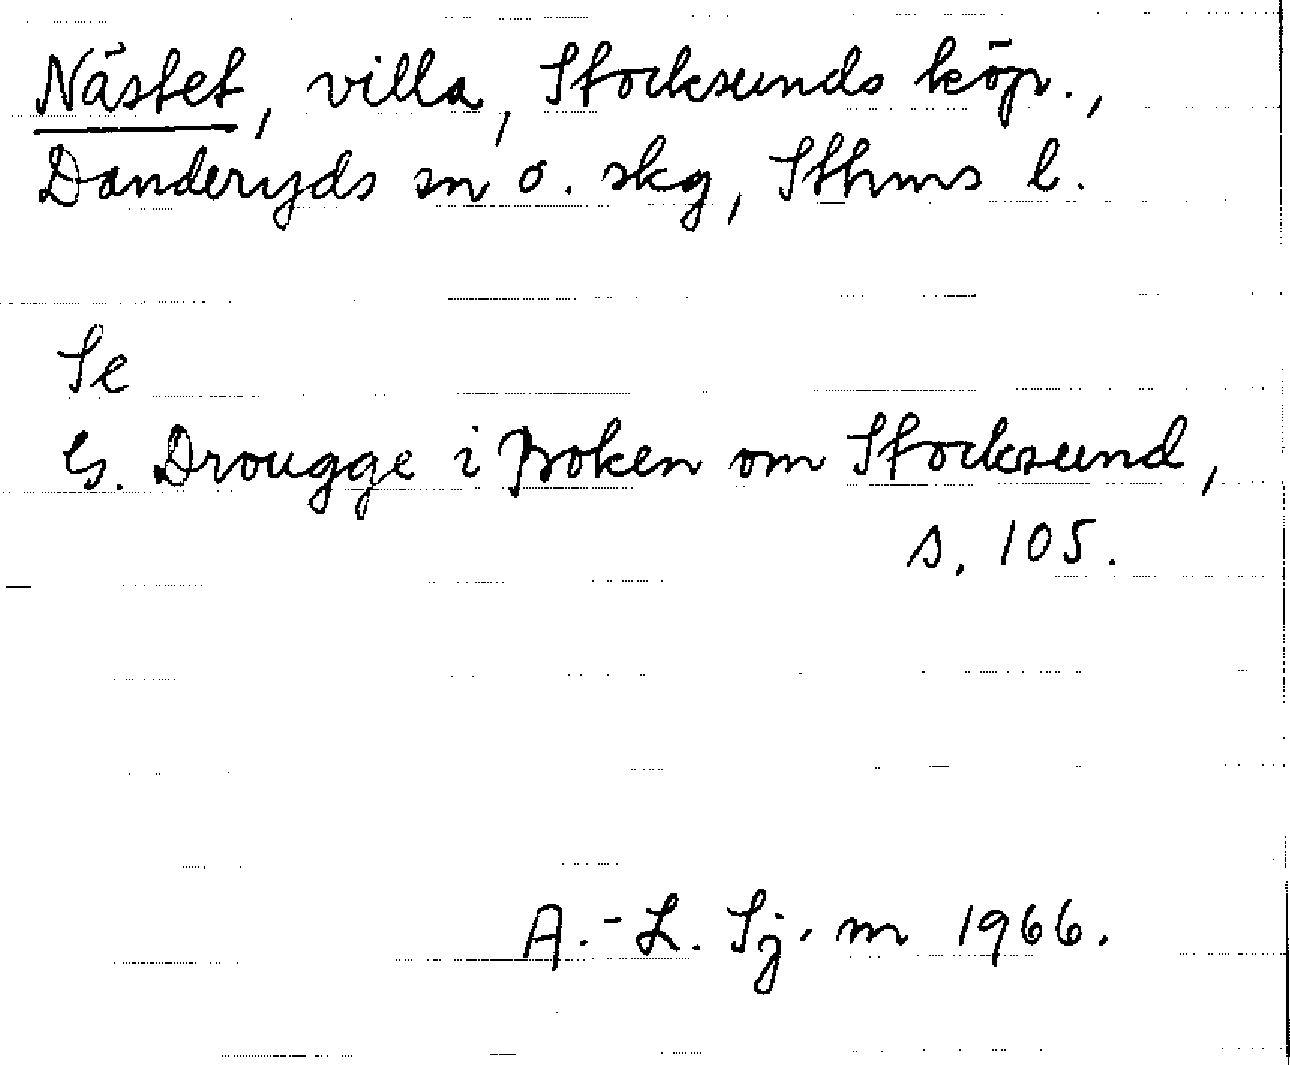 Nästet, villa, Stocksunds köp.,
Danderyds sn o. skg, Sthms l.
Se
G. Drougge i Boken om Stocksund,
s. 105.
A.-L. Sj. m 1966.